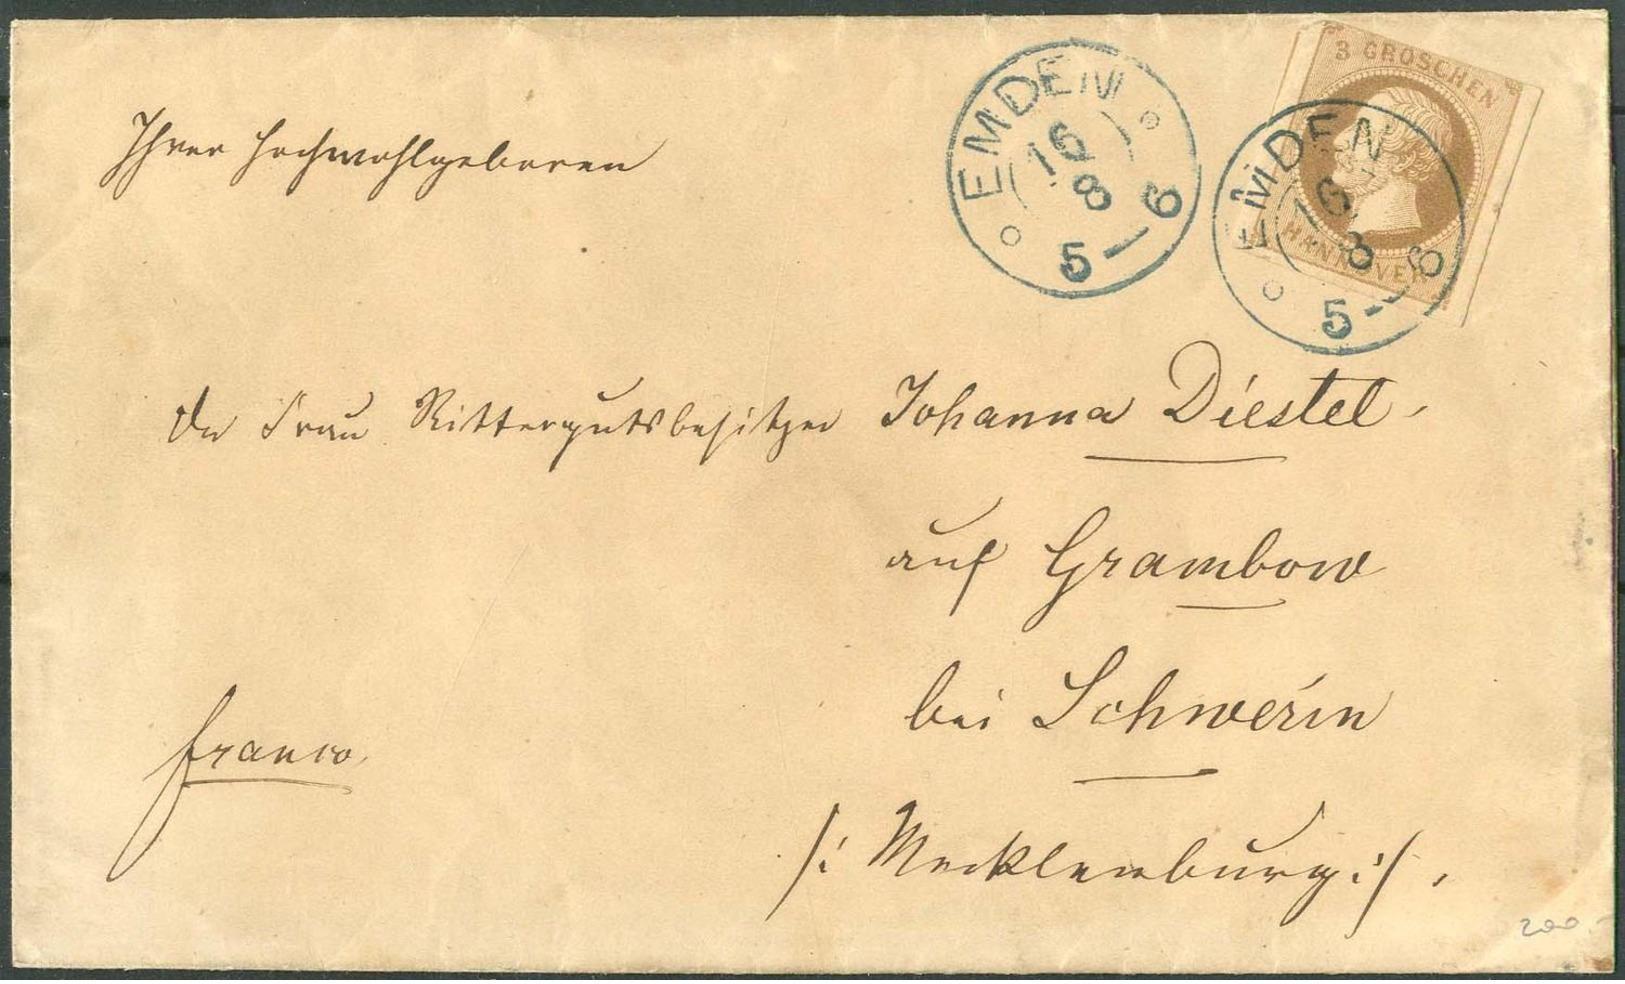 3 GROSCHEN
HANNOVER
EMDEN
16
8
5—6
EMDEN
16
8
5—6
Ihrer Hochwohlgeboren
der Frau Rittergutsbesitzer Johanna Diestel.
auf Grambow
bei Schwerin
franco.
/: Mecklenburg :/.
200.-